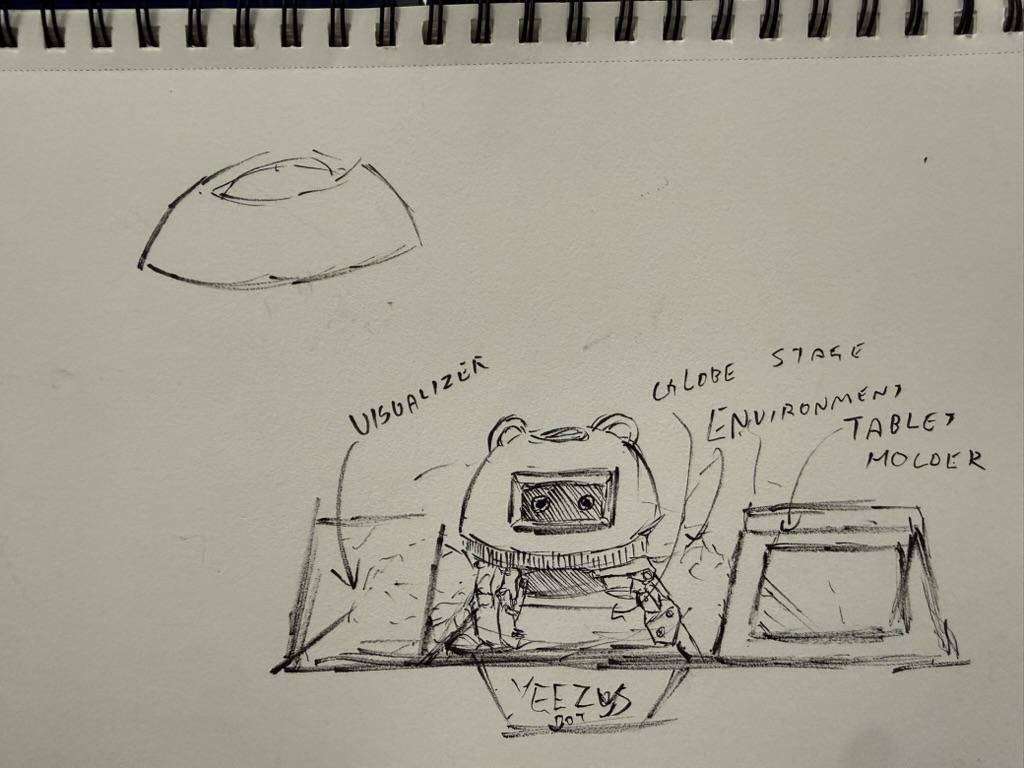 VISUALIZER
GLOBE STAGE
ENVIRONMENT
TABLET
MOLDER
YEEZUS
BOT